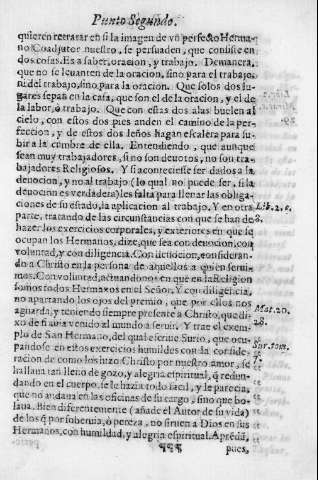 Punto Segundo.
quieren retratar en si la imagen de vn perfecto Herma-
no Coadjutor nuestro, se persuaden, que consiste en
dos cosas. Es a saber, oracion, y trabajo. Demanera,
que no se leuanten de la oracion, sino para el trabajo,
ni del trabajo, sino para la oracion. Que solos dos lu-
gares sepan en la casa, que son el de la oracion, y el de
la labor, ò trabajo. Que con estas dos alas buelen al
cielo, con estos dos pies anden el camino de la per-
feccion, y de estos dos leños hagan escalera para su-
bir a la cumbre de ella. Entendiendo, que aunque
sean muy trabajadores, si no son deuotos, no son tra-
bajadores Religiosos. Y si aconteciesse ser dados a la
deuocion, y no al trabajo (lo qual no puede ser, si la
deuocion es verdadera) les falta para llenar las obliga-
ciones de su estado, la aplicacion al trabajo. Y en otra
parte, tratando de las circunstancias con que se han de
hazer los exercicios corporales, y exteriores en que se
ocupan los Hermanos, dize, que sea con deuocion, con
voluntad, y con diligencia. Con deuocion, consideran-
do a Christo en la persona de aquellos a quien serui-
mos. Con voluntad, actuandonos en que en la Religion
somos todos Hermanos en el Señor. Y con diligencia,
no apartando los ojos del premio, que por ellos nos
aguarda, y teniendo siempre presente a Christo, que di-
xo de si auia venido al mundo a seruir. Y trae el exem-
plo de San Hermano, del qual escriue Surio, que ocu-
pandose en estos exercicios humildes con la conside-
racion de como los hizo Christo por nuestro amor, se
hallaua tan lleno de gozo, y alegria espiritual, q̃ redun-
dando en el cuerpo, se le hazia todo facil, y le parecia,
que no andaua en las oficinas de su cargo, sino que bo-
laua. Bien diferentemente (añade el Autor de su vida)
de los q̃ por soberuia, ò pereza, no siruen a Dios en sus
Hermanos, con humildad, y alegria espiritual. Aprendã,
¶¶¶ pues,
Lib. 2. c.
8.
Mat. 20.
28.
Sur. tom.